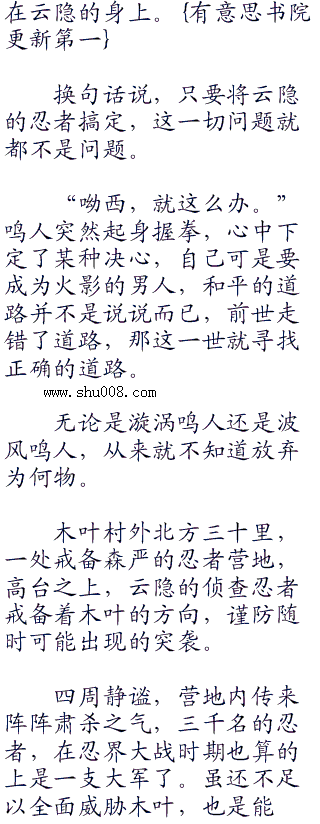 在云隐的身上。{有意思书院
更新第一}
换句话说，只要将云隐
的忍者搞定，这一切问题就
都不是问题。
“呦西，就这么办。”
鸣人突然起身握拳，心中下
定了某种决心，自己可是要
成为火影的男人，和平的道
路并不是说说而已，前世走
错了道路，那这一世就寻找
正确的道路。
www.shu008.com
无论是漩涡鸣人还是波
风鸣人，从来就不知道放弃
为何物。
木叶村外北方三十里，
一处戒备森严的忍者营地，
高台之上，云隐的侦查忍者
戒备着木叶的方向，谨防随
时可能出现的突袭。
四周静谧，营地内传来
阵阵肃杀之气，三千名的忍
者，在忍界大战时期也算的
上是一支大军了。虽还不足
以全面威胁木叶，也是能